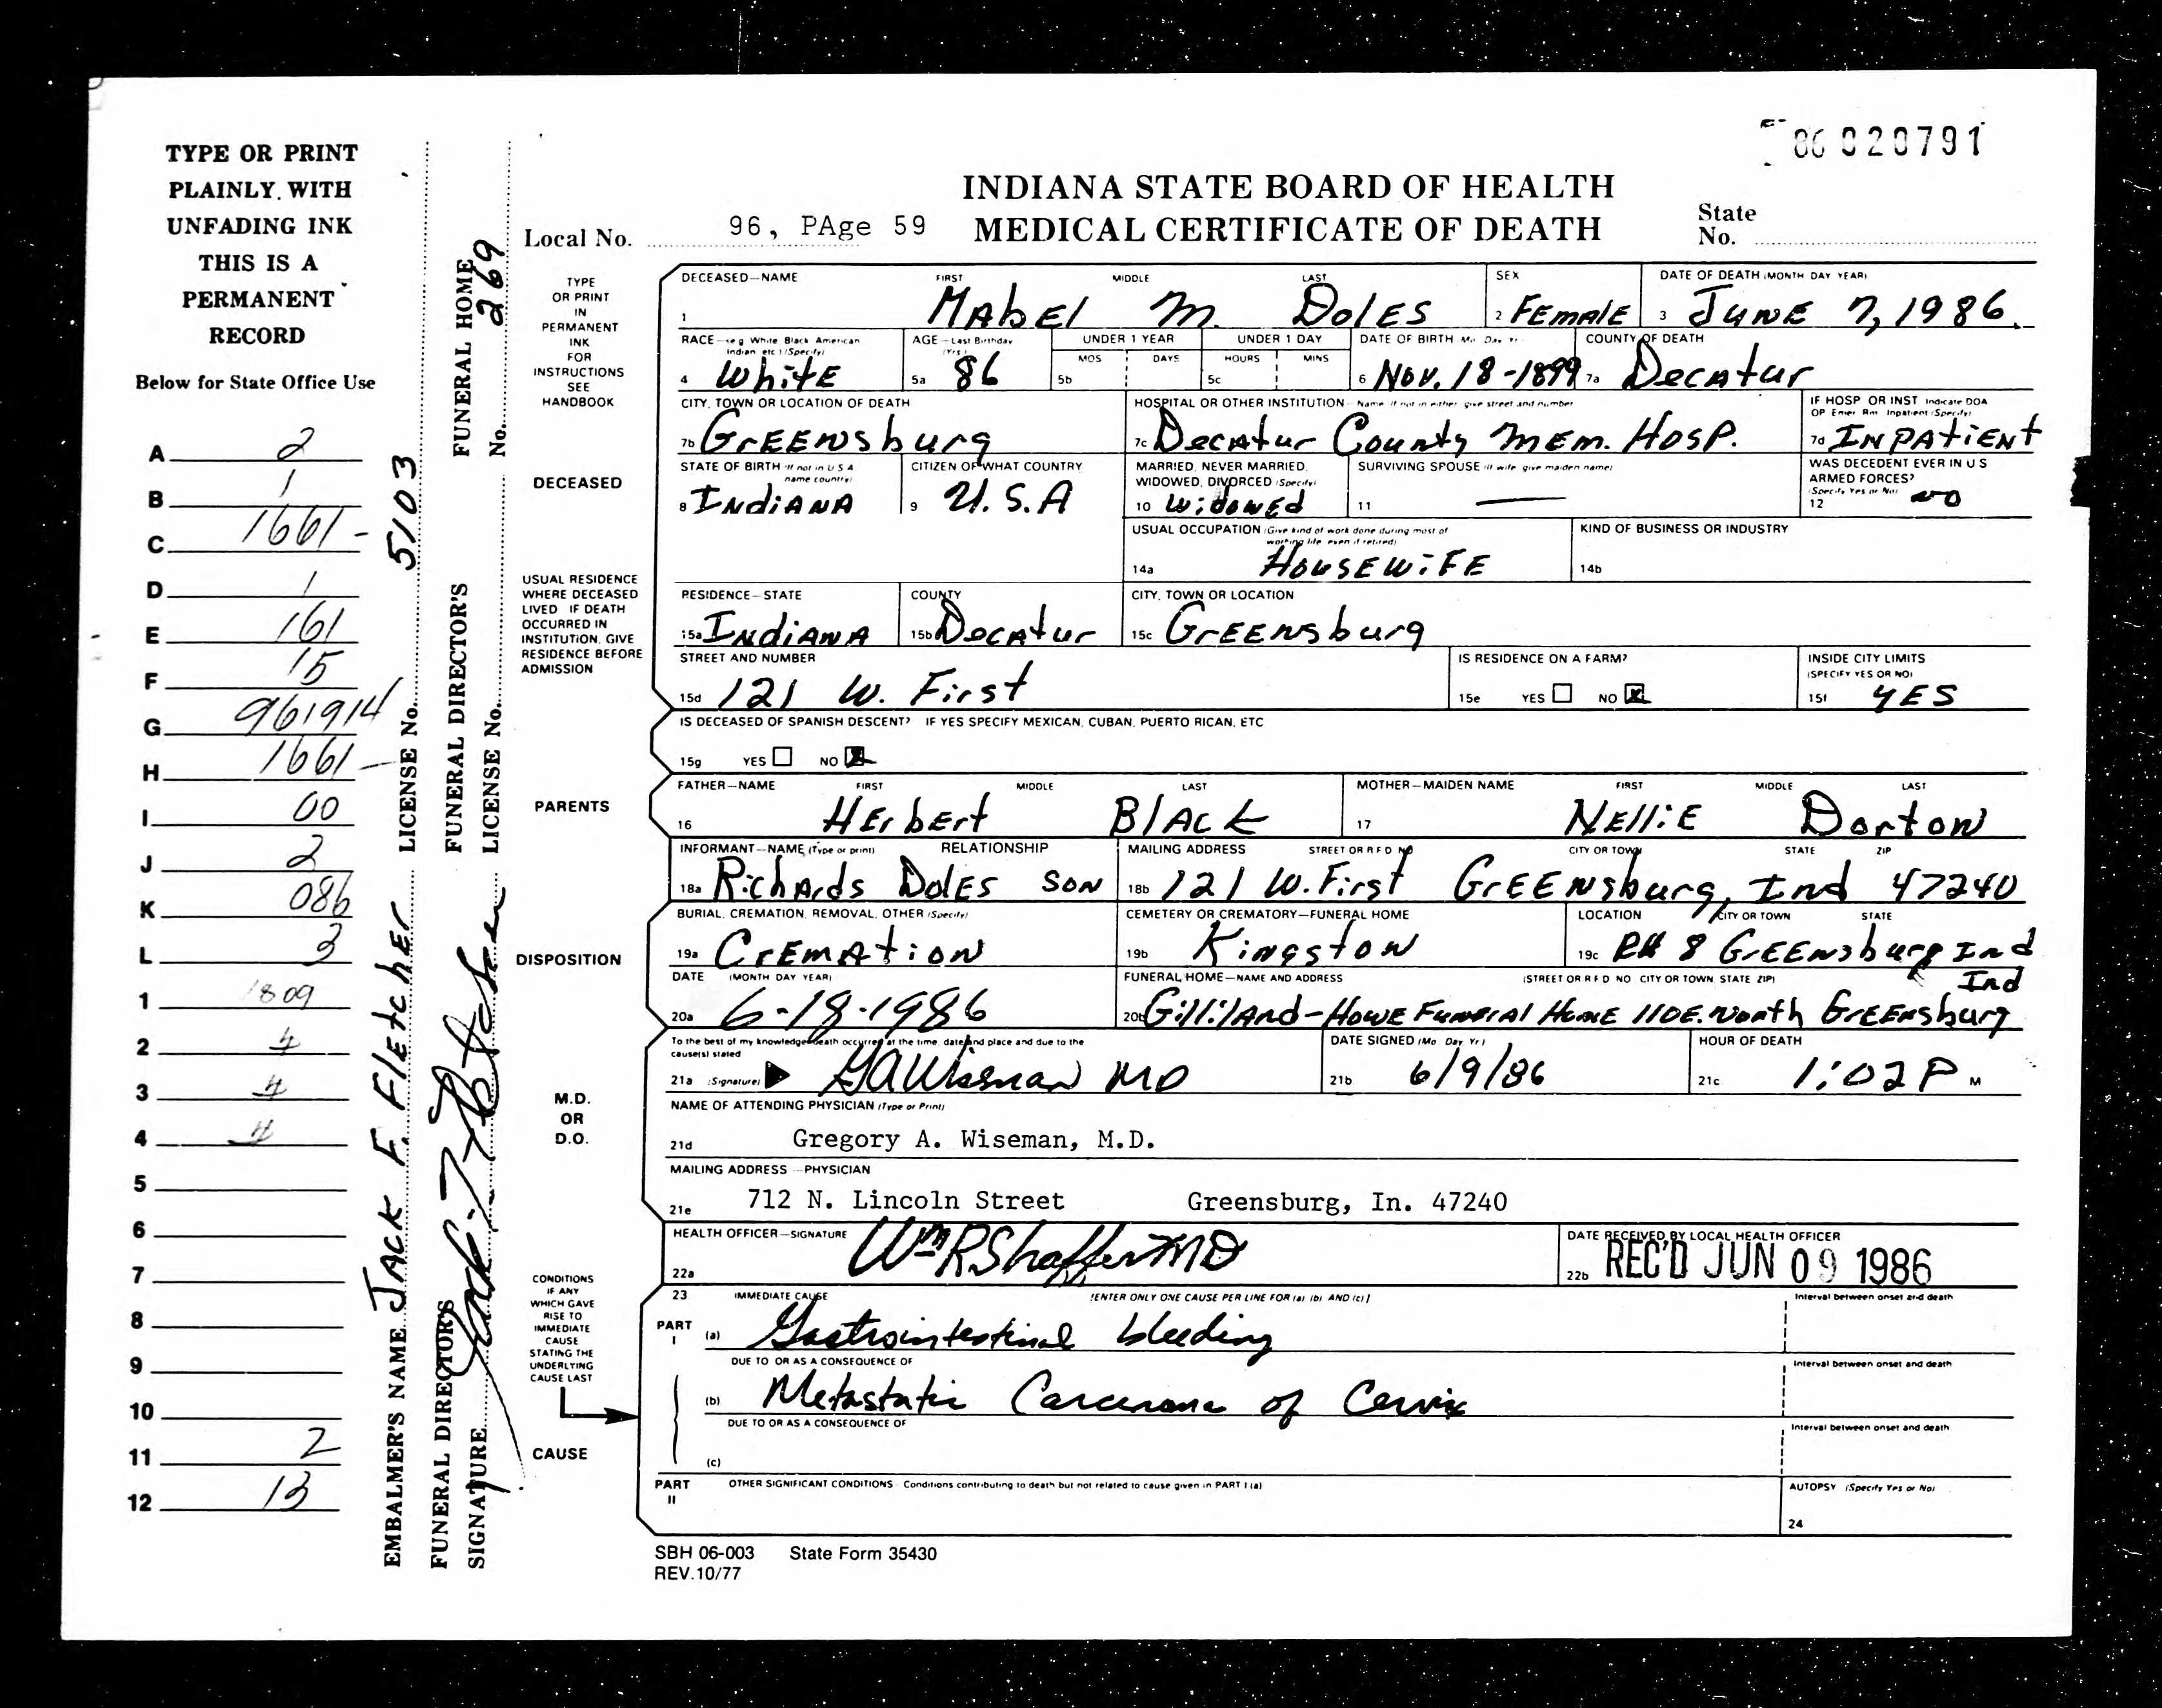 86 020791
INDIANA STATE BOARD OF HEALTH
MEDICAL CERTIFICATE OF DEATH
Local No. 96, PAge 59
State
No.
TYPE OR PRINT
PLAINLY, WITH
UNFADING INK
THIS IS A
PERMANENT
RECORD
Below for State Office Use
A 2
B 1
C 1661-
D 1
E 161
F 15
G 961914
H 1661-
I 00
J 2
K 086
L 3
1 1809
2 4
3 4
4 4
5
6
7
8
9
10
11 2
12 13
EMBALMER'S NAME JACK F. FLEtcHEr LICENSE No. 5103
FUNERAL DIRECTOR'S
SIGNATURE
FUNERAL DIRECTOR'S
LICENSE No.
FUNERAL HOME
No. 269
TYPE
OR PRINT
IN
PERMANENT
INK
FOR
INSTRUCTIONS
SEE
HANDBOOK
DECEASED
USUAL RESIDENCE
WHERE DECEASED
LIVED IF DEATH
OCCURRED IN
INSTITUTION, GIVE
RESIDENCE BEFORE
ADMISSION
PARENTS
DISPOSITION
M.D.
OR
D.O.
CONDITIONS
IF ANY
WHICH GAVE
RISE TO
IMMEDIATE
CAUSE
STATING THE
UNDERLYING
CAUSE LAST
CAUSE
DECEASED—NAME FIRST MIDDLE LAST SEX DATE OF DEATH (MONTH DAY YEAR)
1 MAbEl M. DolES 2 FEmAlE 3 JUNE 7, 1986.
RACE—(e g White, Black, American Indian, etc.) (Specify) AGE—Last Birthday (Yrs.) UNDER 1 YEAR UNDER 1 DAY DATE OF BIRTH Mo Day Yr COUNTY OF DEATH
MOS DAYS HOURS MINS
4 WhitE 5a 86 5b 5c 6 Nov. 18-1899 7a DecAtur
CITY, TOWN OR LOCATION OF DEATH HOSPITAL OR OTHER INSTITUTION—Name (If not in either, give street and number) IF HOSP OR INST Indicate DOA
OP Emer Rm Inpatient (Specify)
7b GrEENsburg 7c DecAtur County MEm. HosP. 7d INPAtiENt
STATE OF BIRTH (If not in U S A name country) CITIZEN OF WHAT COUNTRY MARRIED, NEVER MARRIED, WIDOWED, DIVORCED (Specify) SURVIVING SPOUSE (If wife give maiden name) WAS DECEDENT EVER IN U S ARMED FORCES? (Specify Yes or No)
8 INdiANA 9 U.S.A 10 WidowEd 11 — 12 NO
USUAL OCCUPATION (Give kind of work done during most of working life even if retired) KIND OF BUSINESS OR INDUSTRY
14a HousEWiFE 14b
RESIDENCE—STATE COUNTY CITY, TOWN OR LOCATION
15a INdiANA 15b DecAtur 15c GrEENsburg
STREET AND NUMBER IS RESIDENCE ON A FARM? INSIDE CITY LIMITS
(SPECIFY YES OR NO)
15d 121 W. First 15e YES NO X 15f YES
IS DECEASED OF SPANISH DESCENT? IF YES SPECIFY MEXICAN, CUBAN, PUERTO RICAN, ETC
15g YES NO X
FATHER—NAME FIRST MIDDLE LAST MOTHER—MAIDEN NAME FIRST MIDDLE LAST
16 HErbErt BlAck 17 NElliE DortoN
INFORMANT—NAME (Type or print) RELATIONSHIP MAILING ADDRESS STREET OR R F D NO CITY OR TOWN STATE ZIP
18a RichArds DolES SON 18b 121 W. First GrEENsburg, Ind 47240
BURIAL, CREMATION, REMOVAL, OTHER (Specify) CEMETERY OR CREMATORY—FUNERAL HOME LOCATION CITY OR TOWN STATE
19a CrEmAtioN 19b KiNgstoN 19c RR 8 GrEENsburg Ind
DATE (MONTH DAY YEAR) FUNERAL HOME—NAME AND ADDRESS (STREET OR R F D NO CITY OR TOWN STATE ZIP)
Ind
20a 6-18-1986 20b GillilAnd-HowE FuNErAl HomE 110 E. North GrEENsburg
To the best of my knowledge death occurred at the time, date and place and due to the
cause(s) stated DATE SIGNED (Mo Day Yr) HOUR OF DEATH
21a (Signature) GAWiseman MD 21b 6/9/86 21c 1:02 P M
NAME OF ATTENDING PHYSICIAN (Type or Print)
21d Gregory A. Wiseman, M.D.
MAILING ADDRESS—PHYSICIAN
21e 712 N. Lincoln Street Greensburg, In. 47240
HEALTH OFFICER—SIGNATURE DATE RECEIVED BY LOCAL HEALTH OFFICER
22a Wm R Shaffer MD 22b REC'D JUN 09 1986
23 IMMEDIATE CAUSE [ENTER ONLY ONE CAUSE PER LINE FOR (a) (b) AND (c)] Interval between onset and death
PART
I (a) Gastrointestinal bleeding
DUE TO OR AS A CONSEQUENCE OF Interval between onset and death
(b) Metastatic Carcinoma of Cervix
DUE TO OR AS A CONSEQUENCE OF Interval between onset and death
(c)
PART
II OTHER SIGNIFICANT CONDITIONS—Conditions contributing to death but not related to cause given in PART I (a) AUTOPSY (Specify Yes or No)
24
SBH 06-003 State Form 35430
REV.10/77